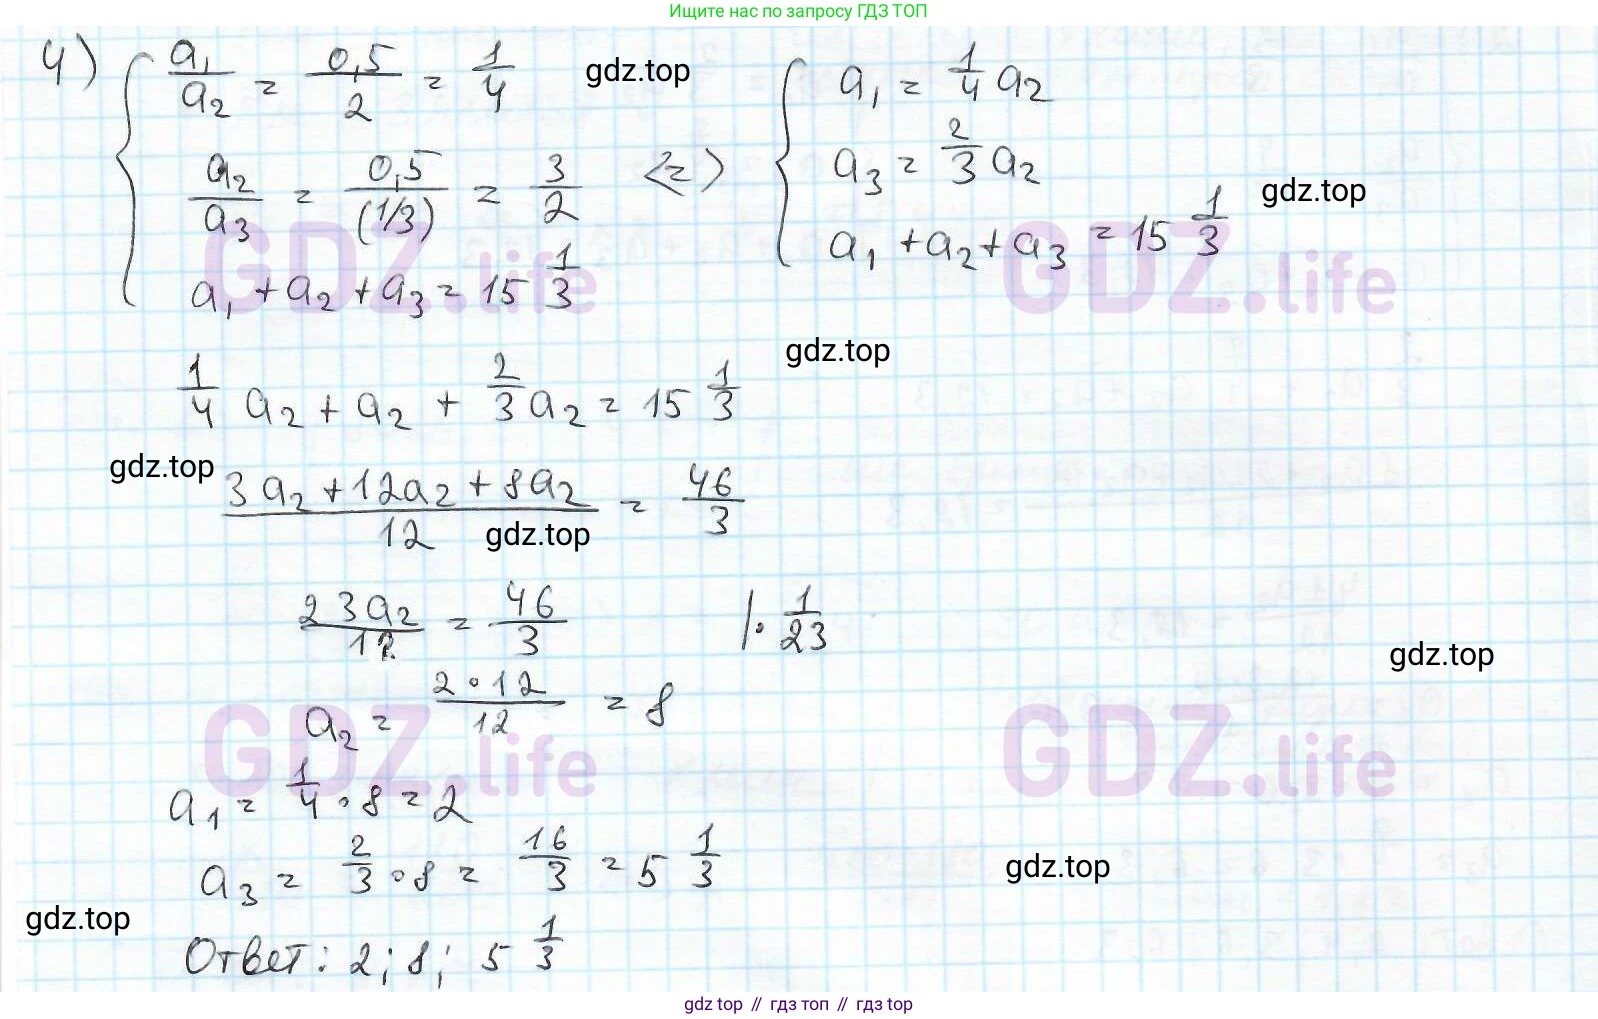 Ищите нас по запросу ГДЗ ТОП
4) { a₁/a₂ = 0,5/2 = 1/4
gdz.top
a₂/a₃ = 0,5/(1/3) = 3/2
a₁ + a₂ + a₃ = 15 1/3
<=> { a₁ = 1/4 a₂
a₃ = 2/3 a₂
gdz.top
a₁ + a₂ + a₃ = 15 1/3
GDZ.life
GDZ.life
gdz.top
1/4 a₂ + a₂ + 2/3 a₂ = 15 1/3
gdz.top
(3a₂ + 12a₂ + 8a₂)/12 = 46/3
gdz.top
23a₂/12 = 46/3 | · 1/23
gdz.top
a₂ = 2·12/12 = 8
GDZ.life
GDZ.life
a₁ = 1/4 · 8 = 2
a₃ = 2/3 · 8 = 16/3 = 5 1/3
gdz.top
gdz.top
Ответ: 2; 8; 5 1/3
gdz top // гдз топ // гдз top